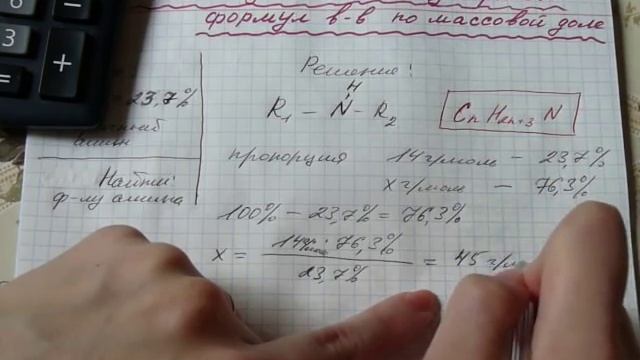 формул в-в по массовой доле
23,7%
амин
Найти:
ф-лу амина
Решение:
H
R₁ – N – R₂
CnH2n+3N
пропорция 14 г/моль – 23,7%
x г/моль – 76,3%
100% – 23,7% = 76,3%
x = 14 г/моль · 76,3% / 23,7% = 45 г/м
6 −
3 +
=